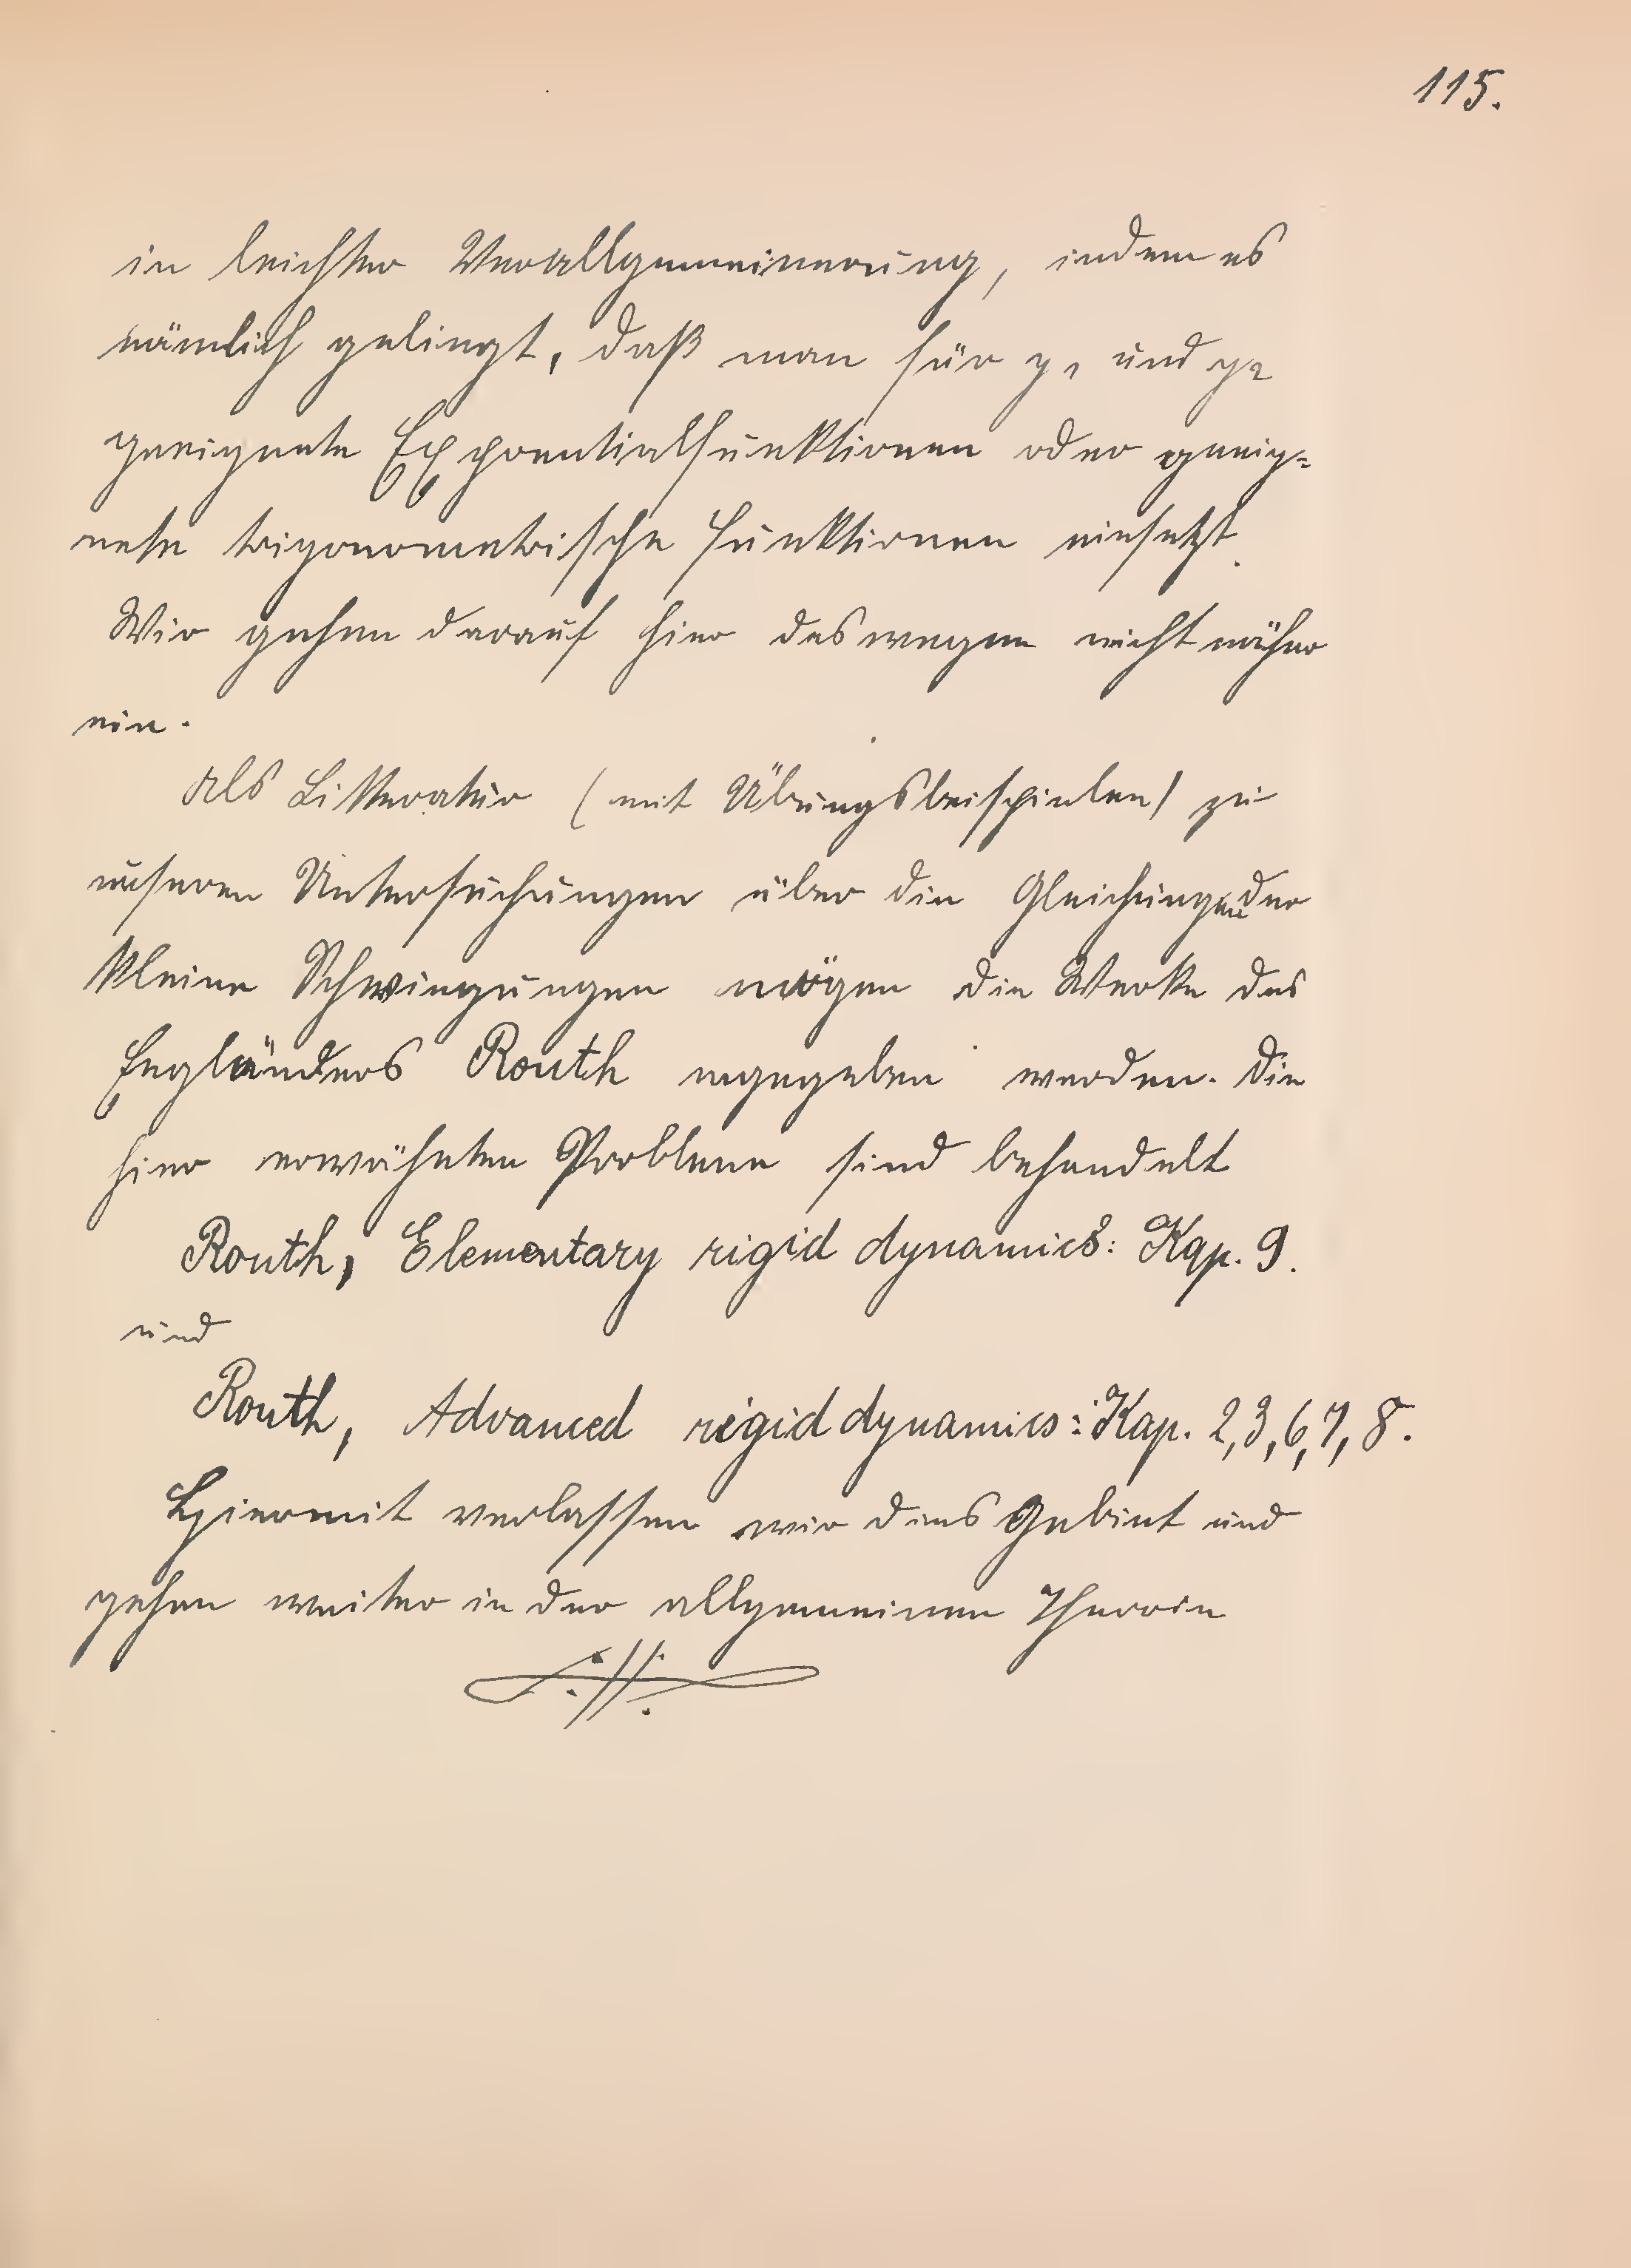 115.
in leichter Verallgemeinerung, indem es
nämlich gelingt, daß man für y₁ und y₂
geeignete Exponentialfunktionen oder geeig=
nete trigonometrische Funktionen einsetzt.
Wir gehen darauf hier deswegen nicht näher
ein.
Als Litteratur (mit Übungsbeispielen) zu
unseren Untersuchungen über die Gleichungen der
kleine Schwingungen mögen die Werke des
Engländers Routh angegeben werden. Die
hier erwähnten Probleme sind behandelt
Routh, Elementary rigid dynamics: Kap. 9.
und
Routh, Advanced rigid dynamics: Kap. 2,3,6,7,8.
Hiermit verlassen wir dies Gebiet und
gehen weiter in der allgemeinen Theorie